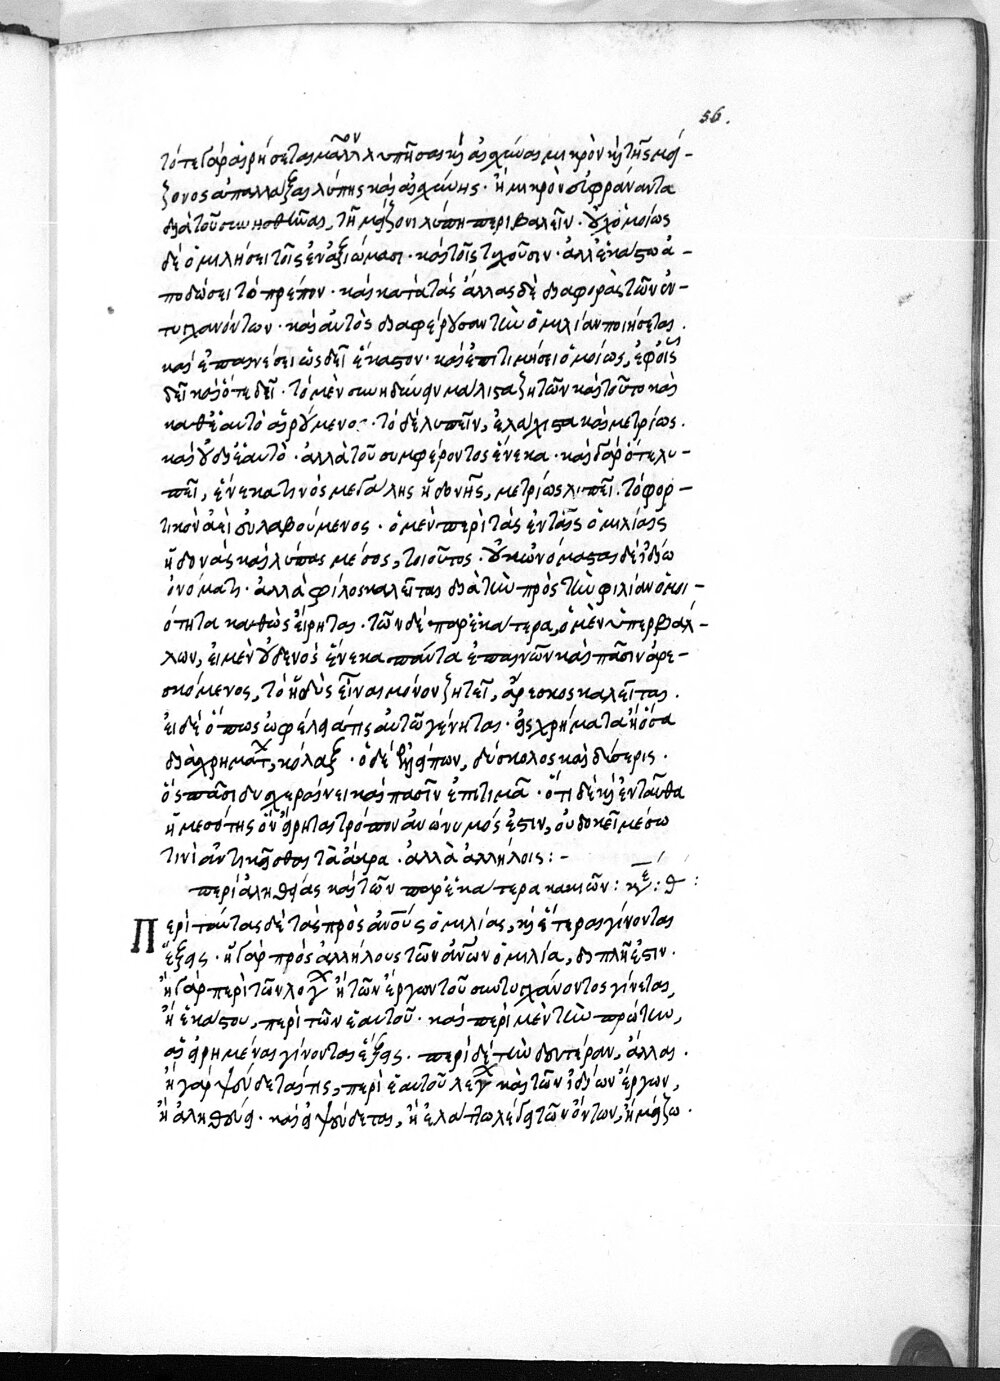 56.
τότε γὰρ αἱρήσεται μᾶλλον λυπῆσαι καὶ αἰσχύναι μικρὸν καὶ τῆς μεί-
ζονος ἀπαλλάξαι λύπης καὶ αἰσχύνης· ἢ μικρὸν εὐφράναντα
διὰ τοῦ συνησθῆναι, τῇ μείζονι λύπῃ περιβαλεῖν. οὐχ ὁμοίως
δὲ ὁμιλήσει τοῖς ἐν ἀξιώμασι· καὶ τοῖς τυχοῦσιν· ἀλλ' ἑκάστῳ ἀ-
ποδώσει τὸ πρέπον· καὶ κατὰ τὰς ἄλλας δὲ διαφορὰς τῶν ἐν-
τυγχανόντων· καὶ αὐτὸς διαφέρουσαν τὴν ὁμιλίαν ποιήσεται.
καὶ ἐπαινέσει ὡς δεῖ ἕκαστον· καὶ ἐπιτιμήσει ὁμοίως, ἐφ' οἷς
δεῖ καὶ ὅτε δεῖ· τὸ μὲν συνηδύνειν μάλιστα ζητῶν καὶ τοῦτο καὶ
καθ' ἑαυτὸ αἱρούμενος· τὸ δὲ λυπεῖν, ἐλάχιστα καὶ μετρίως.
καὶ οὐ δι' ἑαυτὸ· ἀλλὰ τοῦ συμφέροντος ἕνεκα· καὶ γὰρ ὅτε λυ-
πεῖ, ἕνεκά τινος μεγάλης ἡδονῆς, μετρίως λυπεῖ. τὸ φορ-
τικὸν ἀεὶ εὐλαβούμενος· ὁ μὲν περὶ τὰς ἐν ταῖς ὁμιλίαις
ἡδονὰς καὶ λύπας μέσος, τοιοῦτος. οὐκ ὠνόμασται δὲ ἰδίῳ
ὀνόματι· ἀλλὰ φίλος καλεῖται διὰ τὴν πρὸς τὴν φιλίαν ὁμοι-
ότητα καθὼς εἴρηται. τῶν δὲ παρ' ἑκάτερα, ὁ μὲν ὑπερβάλ-
λων, εἰ μὲν οὐδενὸς ἕνεκα πάντα ἐπαινῶν καὶ πᾶσιν ἀρε-
σκόμενος, τὸ ἡδὺς εἶναι μόνον ζητεῖ, ἄρεσκος καλεῖται.
εἰ δὲ ὅπως ὠφέλειά τις αὐτῷ γένηται· εἰς χρήματα ἢ ὅσα
διὰ χρημάτων, κόλαξ· ὁ δὲ ἐλλείπων, δύσκολος καὶ δύσερις.
ὃς πᾶσι δυσχεραίνει καὶ πᾶσιν ἐπιτιμᾷ· ὅτι δὲ καὶ ἐνταῦθα
ἡ μεσότης ὃν εἴρηται τρόπον ἀνώνυμός ἐστιν, οὐ δοκεῖ μέσῳ
τινὶ ἀντικεῖσθαι τὰ ἄκρα. ἀλλὰ ἀλλήλοις:-
περὶ ἀληθείας καὶ τῶν παρ' ἑκάτερα κακιῶν: κεφ: θ:
Περὶ ταύτας δὲ τὰς πρὸς ἀνους ὁμιλίας, καὶ ἕτεραι γίνονται
ἕξεις· ἡ γὰρ πρὸς ἀλλήλους τῶν ἀνων ὁμιλία, διπλῆ ἐστιν·
ἢ γὰρ περὶ τῶν λόγων ἢ τῶν ἔργων τοῦ συντυγχάνοντος γίνεται,
ἢ ἑκάστου, περὶ τῶν ἑαυτοῦ· καὶ περὶ μὲν τὴν πρώτην,
αἱ εἰρημέναι γίνονται ἕξεις. περὶ δὲ τὴν δευτέραν, ἄλλαι.
ἢ γὰρ ψεύδεταί τις, περὶ ἑαυτοῦ λέγων καὶ τῶν ἰδίων ἔργων,
ἢ ἀληθεύει· καὶ εἰ ψεύδεται, ἢ ἐλάττω λέγει τῶν ὄντων, ἢ μείζω.